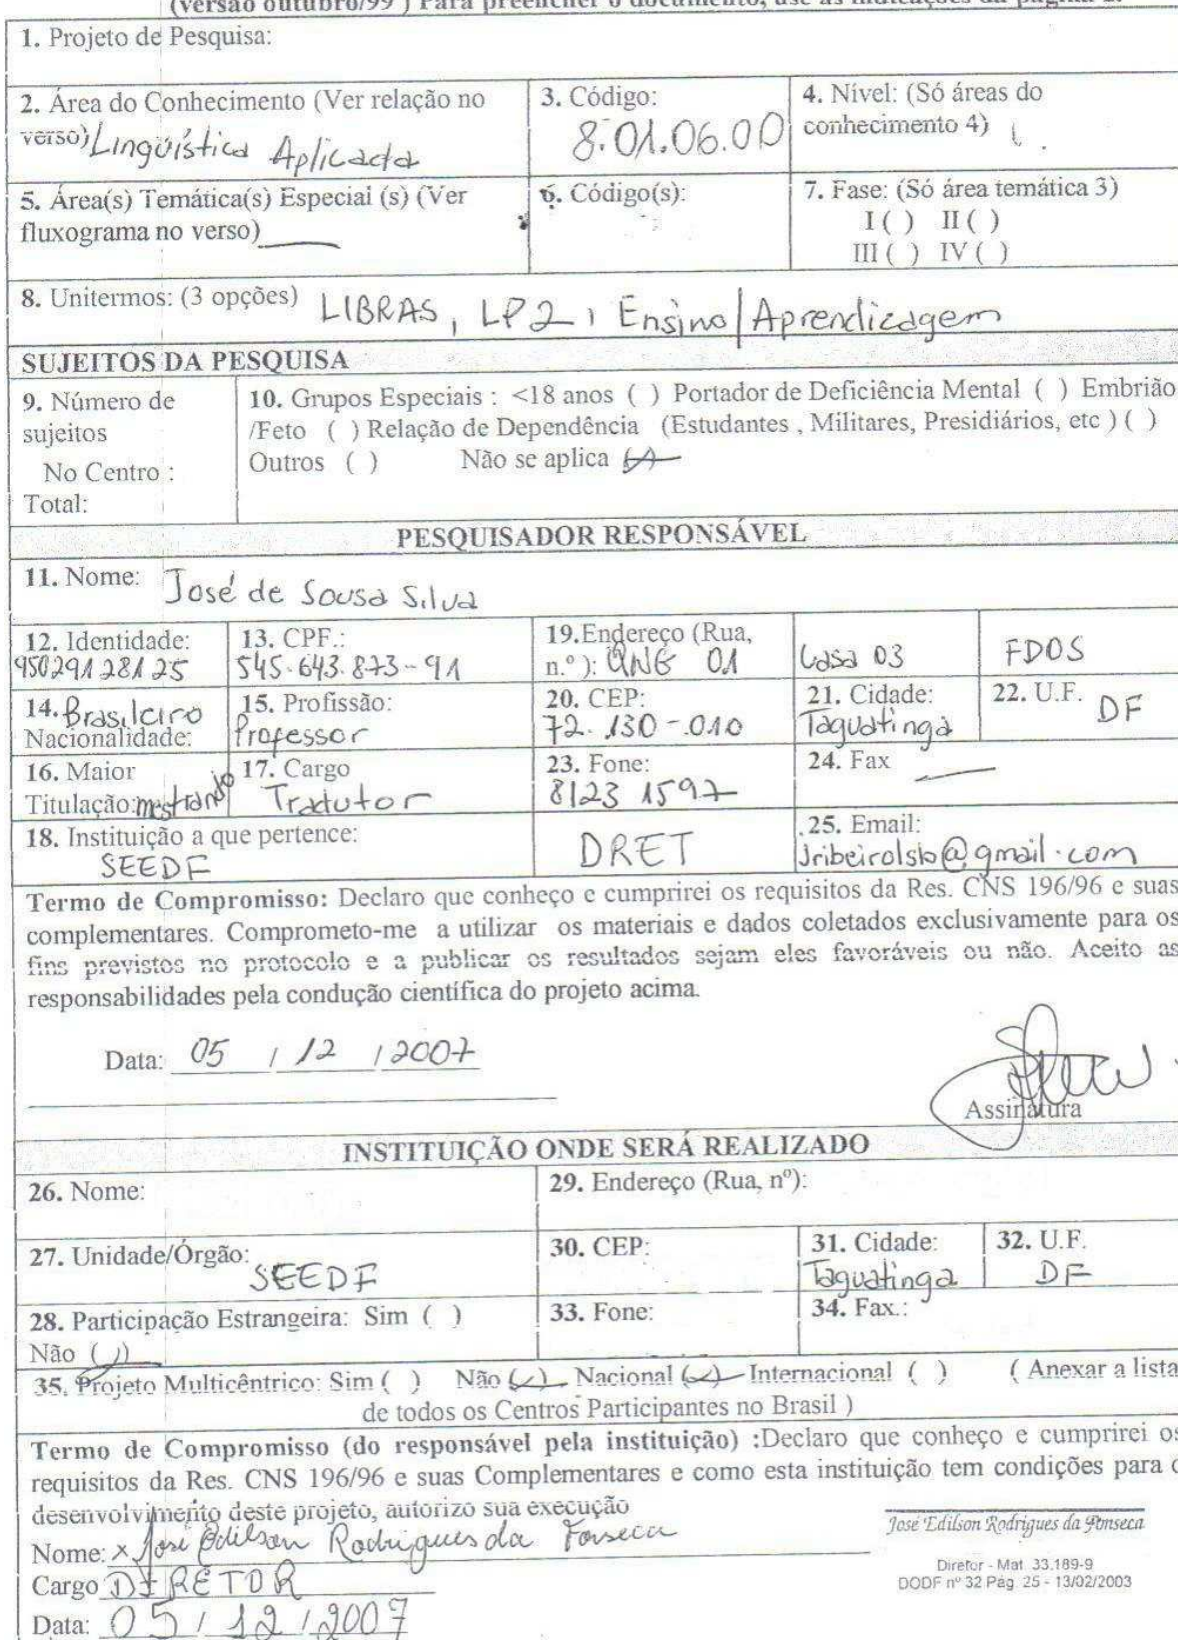 (versão outubro/99 ) Para preencher o documento, use as indicações da página 2.
1. Projeto de Pesquisa:
2. Área do Conhecimento (Ver relação no
verso) Lingüística Aplicada
3. Código:
8.01.06.00
4. Nível: (Só áreas do
conhecimento 4)
5. Área(s) Temática(s) Especial (s) (Ver
fluxograma no verso)
6. Código(s):
7. Fase: (Só área temática 3)
I ( ) II ( )
III ( ) IV ( )
8. Unitermos: (3 opções) LIBRAS, LP2, Ensino/Aprendizagem
SUJEITOS DA PESQUISA
9. Número de
sujeitos
No Centro :
Total:
10. Grupos Especiais : <18 anos ( ) Portador de Deficiência Mental ( ) Embrião
/Feto ( ) Relação de Dependência (Estudantes , Militares, Presidiários, etc ) ( )
Outros ( ) Não se aplica (x)
PESQUISADOR RESPONSÁVEL
11. Nome: José de Sousa Silva
12. Identidade:
95029128125
13. CPF.:
545.643.873-91
19.Endereço (Rua,
n.º ): QNG 01
Casa 03
FDOS
14. Brasileiro
Nacionalidade:
15. Profissão:
Professor
20. CEP:
72.130-010
21. Cidade:
Taguatinga
22. U.F. DF
16. Maior
Titulação: mestrando
17. Cargo
Tradutor
23. Fone:
8123 1597
24. Fax
18. Instituição a que pertence:
SEEDF
DRET
25. Email:
jribeirolsb@gmail.com
Termo de Compromisso: Declaro que conheço e cumprirei os requisitos da Res. CNS 196/96 e suas
complementares. Comprometo-me a utilizar os materiais e dados coletados exclusivamente para os
fins previstos no protocolo e a publicar os resultados sejam eles favoráveis ou não. Aceito as
responsabilidades pela condução científica do projeto acima.
Data: 05 / 12 / 2007
Assinatura
INSTITUIÇÃO ONDE SERÁ REALIZADO
26. Nome:
29. Endereço (Rua, nº):
27. Unidade/Órgão:
SEEDF
30. CEP:
31. Cidade:
Taguatinga
32. U.F.
DF
28. Participação Estrangeira: Sim ( )
Não (✓)
33. Fone:
34. Fax.:
35. Projeto Multicêntrico: Sim ( ) Não (✓) Nacional (✓) Internacional ( ) ( Anexar a lista
de todos os Centros Participantes no Brasil )
Termo de Compromisso (do responsável pela instituição) :Declaro que conheço e cumprirei os
requisitos da Res. CNS 196/96 e suas Complementares e como esta instituição tem condições para o
desenvolvimento deste projeto, autorizo sua execução
Nome: x José Edilson Rodrigues da Fonseca
Cargo DIRETOR
Data: 05 / 12 / 2007
José Edilson Rodrigues da Fonseca
Diretor - Mat. 33.189-9
DODF nº 32 Pág. 25 - 13/02/2003